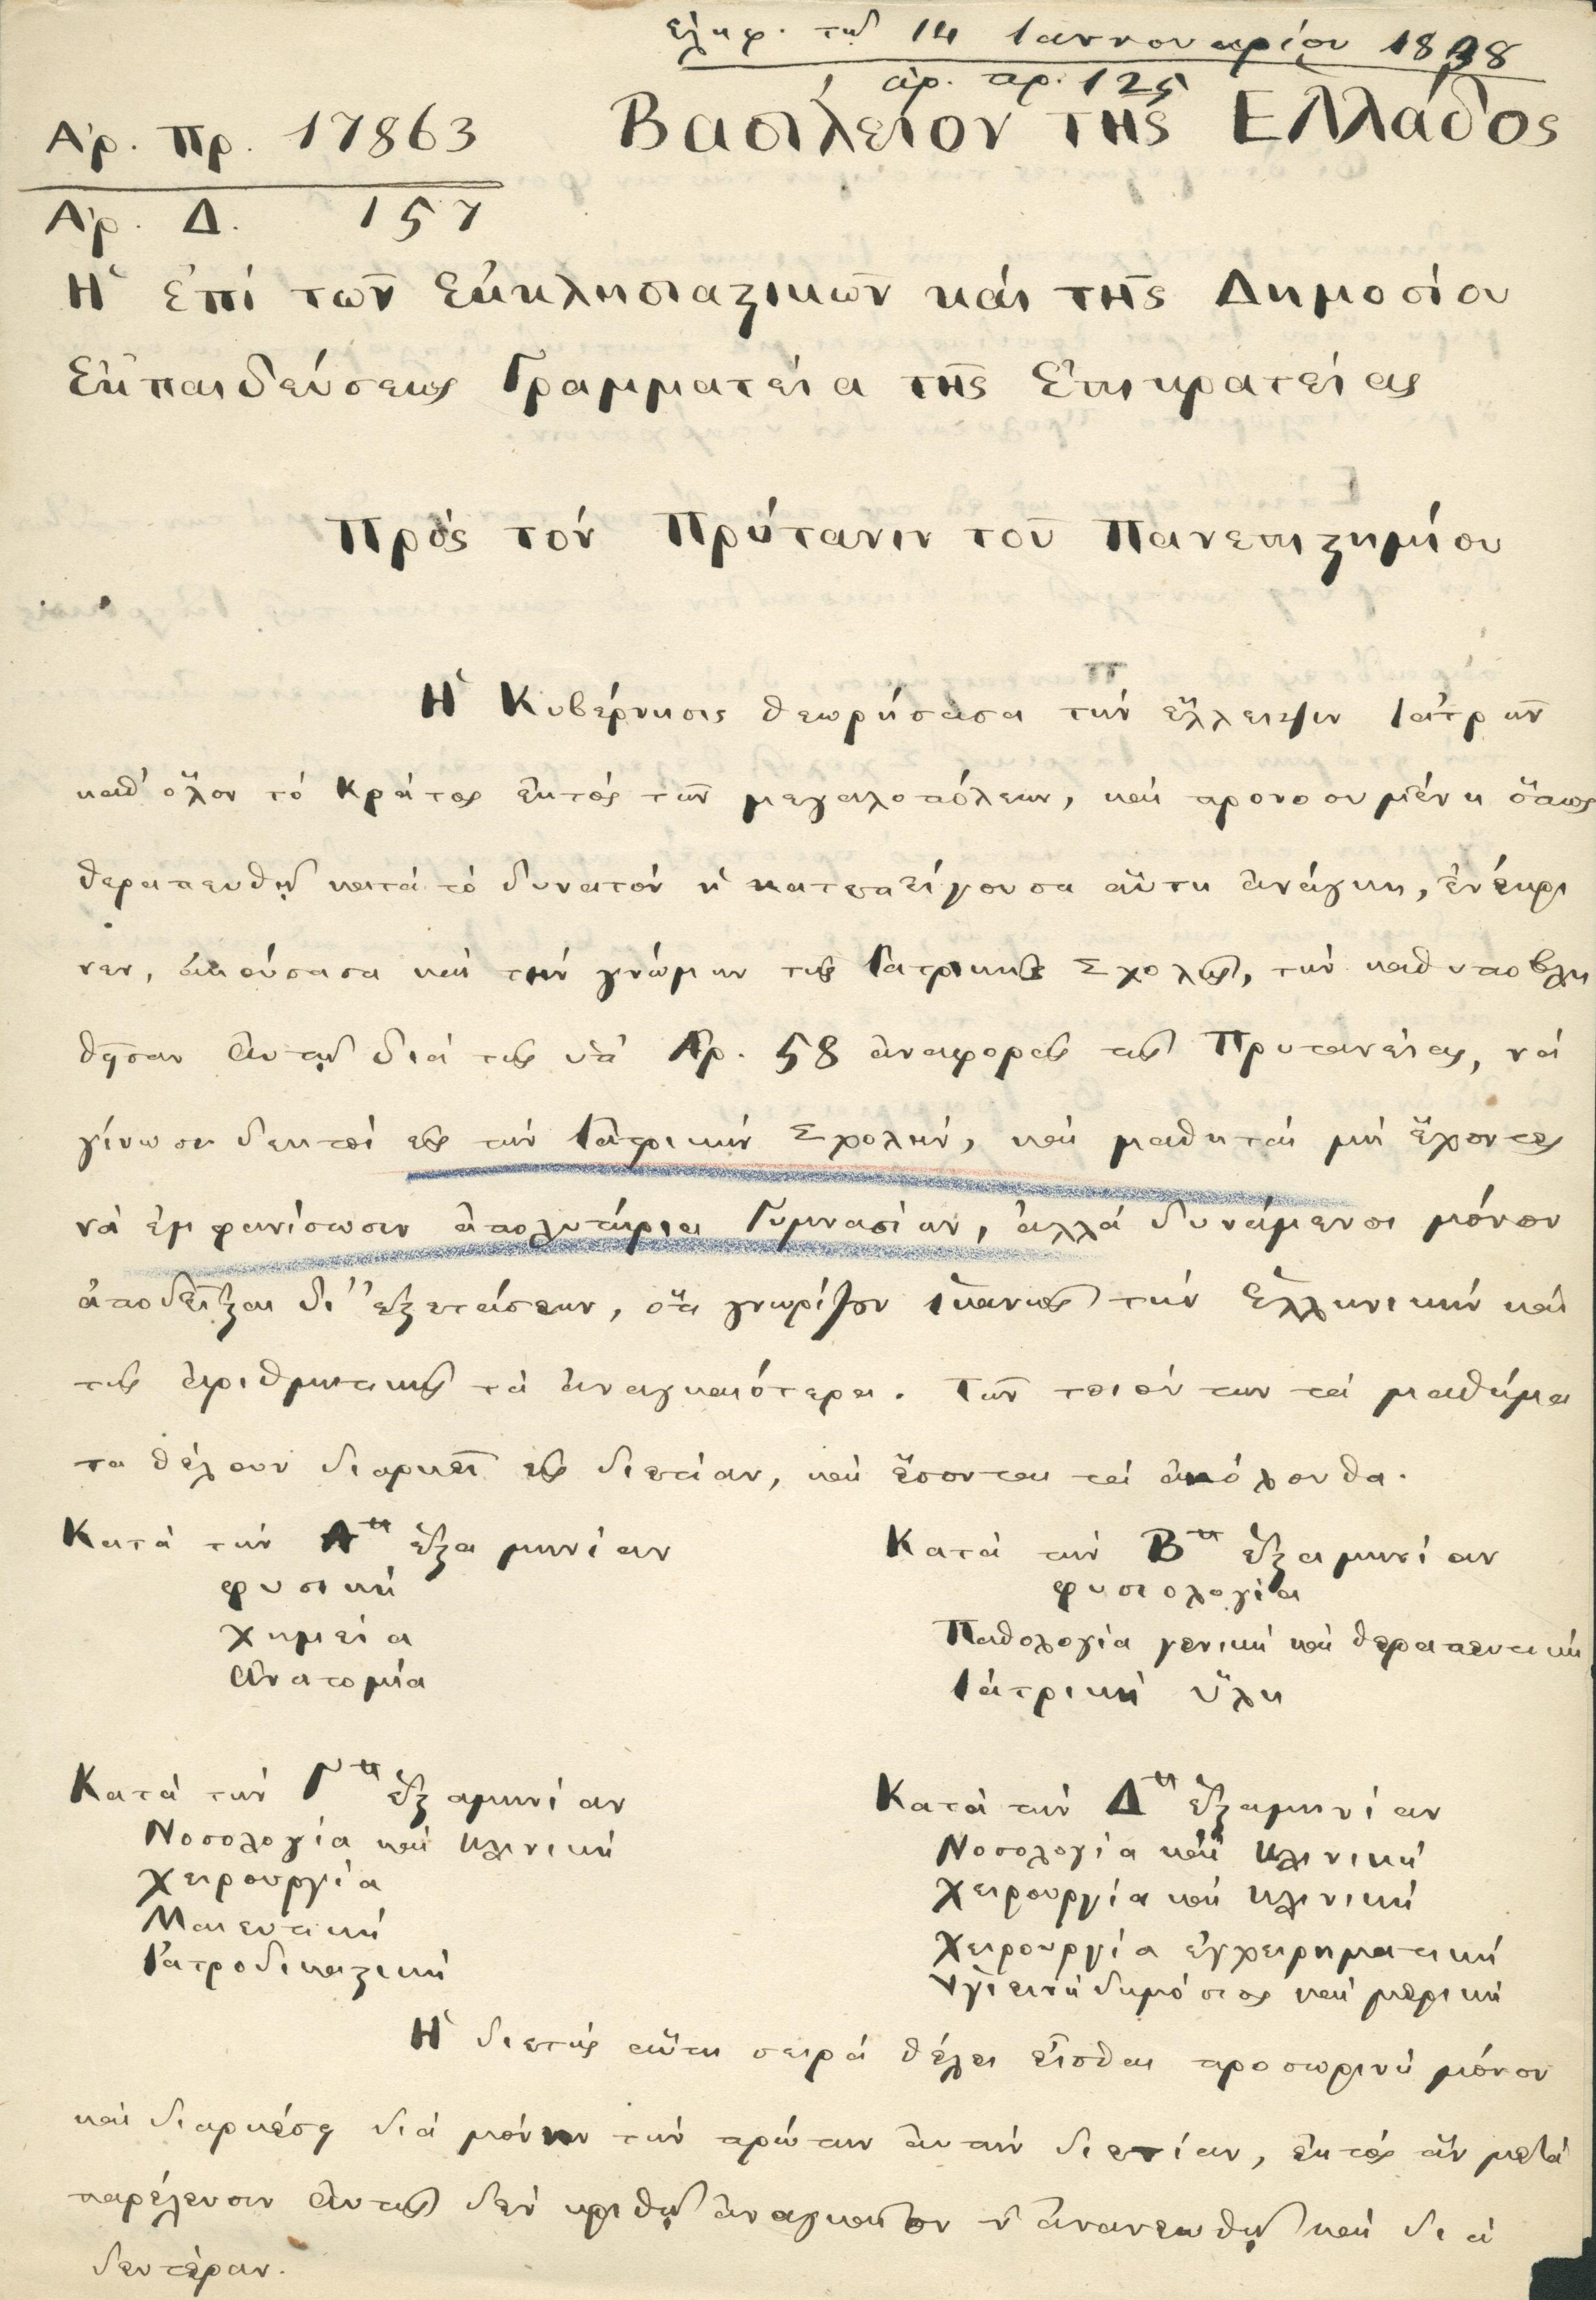 ἐλήφ. τῇ 14 Ἰαννουαρίου 1838
ἀρ. πρ. 125
Ἀρ. Πρ. 17863
Βασίλειον τῆς Ἑλλάδος
Ἀρ. Δ. 157
Ἡ ἐπί τῶν Ἐκκλησιαστικῶν καί τῆς Δημοσίου
Ἐκπαιδεύσεως Γραμματεία τῆς Ἐπικρατείας
Πρός τόν Πρύτανιν τοῦ Πανεπιστημίου
Ἡ Κυβέρνησις θεωρήσασα τήν ἔλλειψιν Ἰατρῶν
καθ' ὅλον τό Κράτος ἐκτός τῶν μεγαλοπόλεων, καί προνοουμένη ὅπως
θεραπευθῇ κατά τό δυνατόν ἡ κατεπείγουσα αὕτη ἀνάγκη, ἐνέκρι
νεν, ἀκούσασα καί τήν γνώμην τῆς Ἰατρικῆς Σχολῆς, τήν καθυποβλη
θῆσαν αὐτῇ διά τῆς ὑπ' Ἀρ. 58 ἀναφορᾶς τῆς Πρυτανείας, νά
γίνωσι δεκτοί εἰς τήν Ἰατρικήν Σχολήν, καί μαθηταί μή ἔχοντες
νά ἐμφανίσωσιν ἀπολυτήρια Γυμνασίων, ἀλλά δυνάμενοι μόνον
ἀποδεῖξαι δι' ἐξετάσεων, ὅτι γνωρίζουν ἱκανῶς τήν Ἑλληνικήν καί
τῆς ἀριθμητικῆς τά ἀναγκαιότερα. Τῶν τοιούτων τά μαθήμα
τα θέλουν διαρκεῖ εἰς διετίαν, καί ἔσονται τά ἀκόλουθα.
Κατά τήν Αην ἑξαμηνίαν
φυσική
χημεία
Ἀνατομία
Κατά τήν Βην ἑξαμηνίαν
φυσιολογία
Παθολογία γενική καί θεραπευτική
Ἰατρική ὕλη
Κατά τήν Γην ἑξαμηνίαν
Νοσολογία καί Κλινική
Χειρουργία
Μαιευτική
Ἰατροδικαστική
Κατά τήν Δην ἑξαμηνίαν
Νοσολογία καί Κλινική
Χειρουργία καί Κλινική
Χειρουργία ἐγχειρηματική
Ὑγιεινή δημόσιος καί μερική
Ἡ διετής αὕτη σειρά θέλει εἶσθαι προσωρινή μόνον
καί διαρκέσῃ διά μόνην τήν πρώτην αὐτήν διετίαν, ἐκτός ἄν μετά
παρέλευσιν αὐτῆς δέν κριθῇ ἀναγκαῖον ν' ἀνανεωθῇ καί διά
δευτέραν.